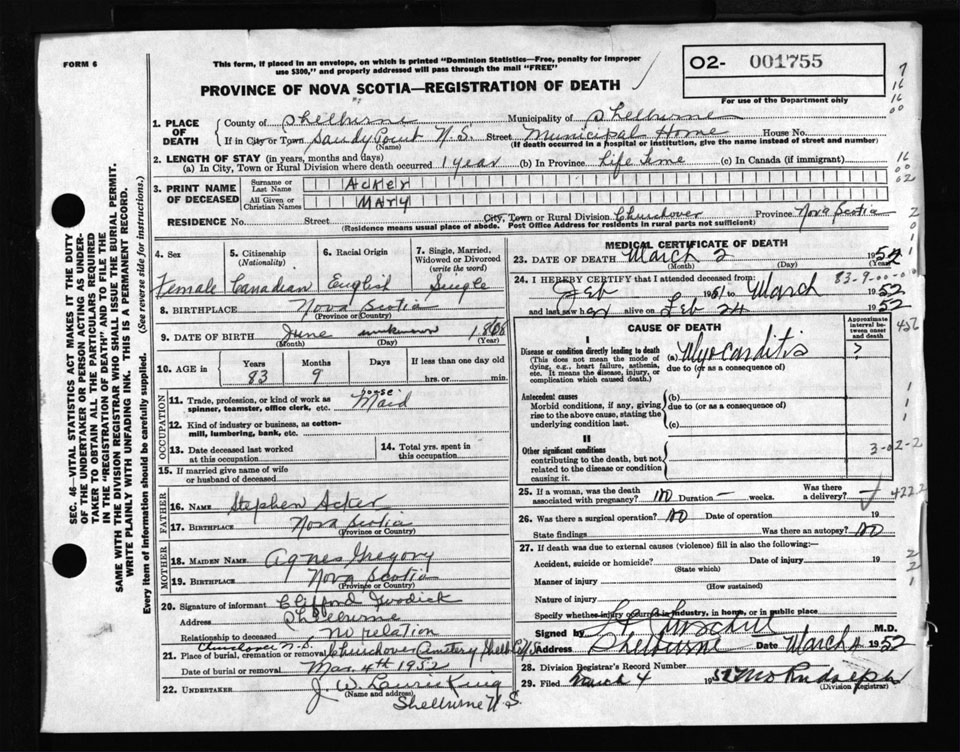 FORM 6
This form, if placed in an envelope, on which is printed "Dominion Statistics—Free, penalty for improper
use $300," and properly addressed will pass through the mail "FREE"
O2- 001755
For use of the Department only
PROVINCE OF NOVA SCOTIA—REGISTRATION OF DEATH
7
16
16
00
1. PLACE OF DEATH
County of Shelburne Municipality of Shelburne
If in City or Town Sandy Point N.S. Street Municipal Home House No.
(Name) (If death occurred in a hospital or institution, give the name instead of street and number)
2. LENGTH OF STAY (in years, months and days)
(a) In City, Town or Rural Division where death occurred 1 year (b) In Province Life time (c) In Canada (if immigrant)
16
00
02
3. PRINT NAME OF DECEASED
Surname or Last Name Acker
All Given or Christian Names MARY
RESIDENCE No. Street City, Town or Rural Division Churchover Province Nova Scotia
(Residence means usual place of abode. Post Office Address for residents in rural parts not sufficient)
2
0
1
4. Sex Female
5. Citizenship (Nationality) Canadian
6. Racial Origin English
7. Single, Married, Widowed or Divorced (write the word) Single
8. BIRTHPLACE Nova Scotia
(Province or Country)
9. DATE OF BIRTH June unknown 1868
(Month) (Day) (Year)
10. AGE in Years 83 Months 9 Days If less than one day old
hrs. or min.
OCCUPATION
11. Trade, profession, or kind of work as
spinner, teamster, office clerk, etc. house Maid
12. Kind of industry or business, as cotton-
mill, lumbering, bank, etc.
13. Date deceased last worked
at this occupation
14. Total yrs. spent in
this occupation
15. If married give name of wife
or husband of deceased
FATHER
16. NAME Stephen Acker
17. BIRTHPLACE Nova Scotia
(Province or Country)
MOTHER
18. MAIDEN NAME Agnes Gregory
19. BIRTHPLACE Nova Scotia
(Province or Country)
20. Signature of informant Clifford
Address Shelburne
Relationship to deceased No relation
Churchover N.S.
21. Place of burial, cremation or removal Churchover Cemetery Shelb Co N.S.
Date of burial or removal Mar. 4th 1952
22. UNDERTAKER J. W.
(Name and address)
Shelburne N S.
MEDICAL CERTIFICATE OF DEATH
23. DATE OF DEATH March 2 1952
(Month) (Day) (Year)
24. I HEREBY CERTIFY that I attended deceased from: 83-9-00-00
Feb 1951 to March 1952
and last saw her alive on Feb 24 1952
CAUSE OF DEATH
Approximate interval between onset and death
456
I
Disease or condition directly leading to death (a) Myocarditis ?
(This does not mean the mode of
dying, e.g., heart failure, asthenia,
etc. It means the disease, injury, or
complication which caused death.)
due to (or as a consequence of)
Antecedent causes
Morbid conditions, if any, giving
rise to the above cause, stating the
underlying condition last.
(b)
due to (or as a consequence of)
(c)
1
1
1
II
Other significant conditions
contributing to the death, but not
related to the disease or condition
causing it.
3-02-2
25. If a woman, was the death
associated with pregnancy? no Duration — weeks. Was there a delivery? 4222
26. Was there a surgical operation? No Date of operation 19
State findings Was there an autopsy? No
27. If death was due to external causes (violence) fill in also the following:—
Accident, suicide or homicide? Date of injury 19
(State which)
Manner of injury
(How sustained)
Nature of injury
Specify whether injury occurred in industry, in home, or in public place
2
2
1
Signed by M.D.
Address Shelburne Date March 4 1952
28. Division Registrar's Record Number
29. Filed March 4 1952 Rudolph
(Division Registrar)
SEC. 46—VITAL STATISTICS ACT MAKES IT THE DUTY
OF THE UNDERTAKER OR PERSON ACTING AS UNDER-
TAKER TO OBTAIN ALL THE PARTICULARS REQUIRED
IN THE "REGISTRATION OF DEATH" AND TO FILE THE
SAME WITH THE DIVISION REGISTRAR WHO SHALL ISSUE THE BURIAL PERMIT.
WRITE PLAINLY WITH UNFADING INK. THIS IS A PERMANENT RECORD.
Every item of information should be carefully supplied. (See reverse side for instructions.)